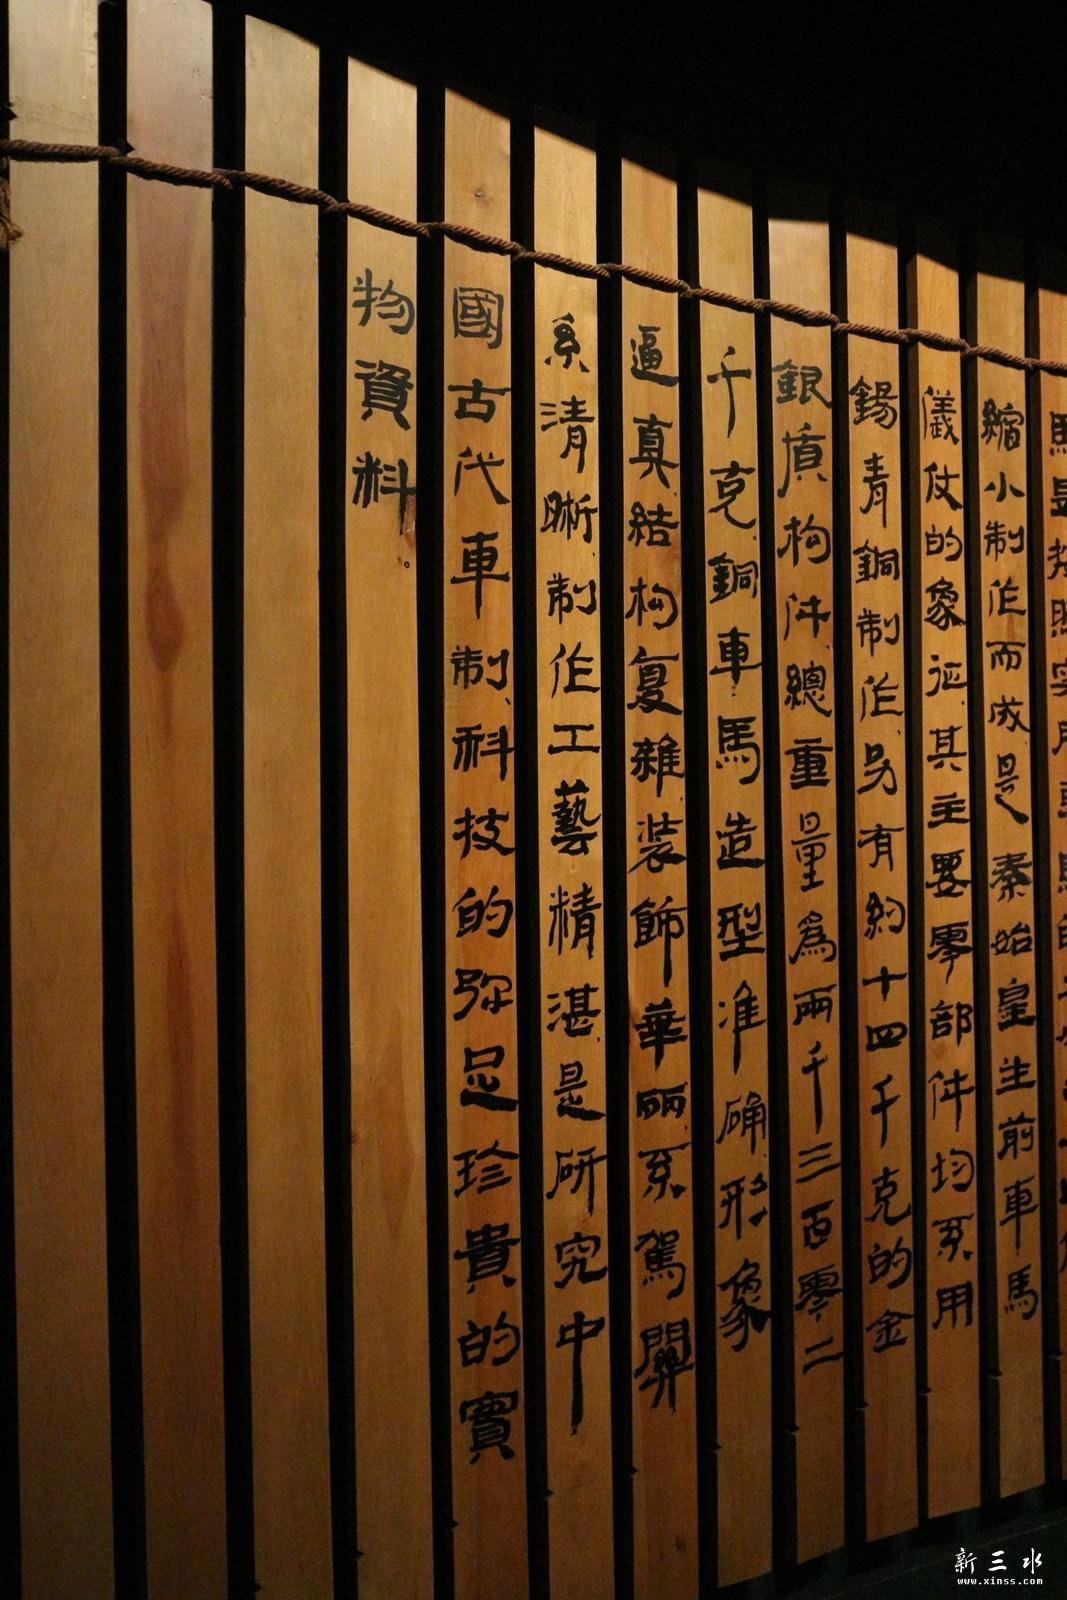 縮小制作而成是秦始皇生前車馬
儀仗的象征、其主要零部件均系用
錫青銅制作、另有約十四千克的金
銀質构件、總重量爲兩千三百零二
千克、銅車馬造型准确、形象
逼真、結构复雜、装飾華丽、系駕關
系清晰、制作工藝精湛、是研究中
國古代車制、科技的弥足珍貴的實
物資料。
新三水
www.xinss.com